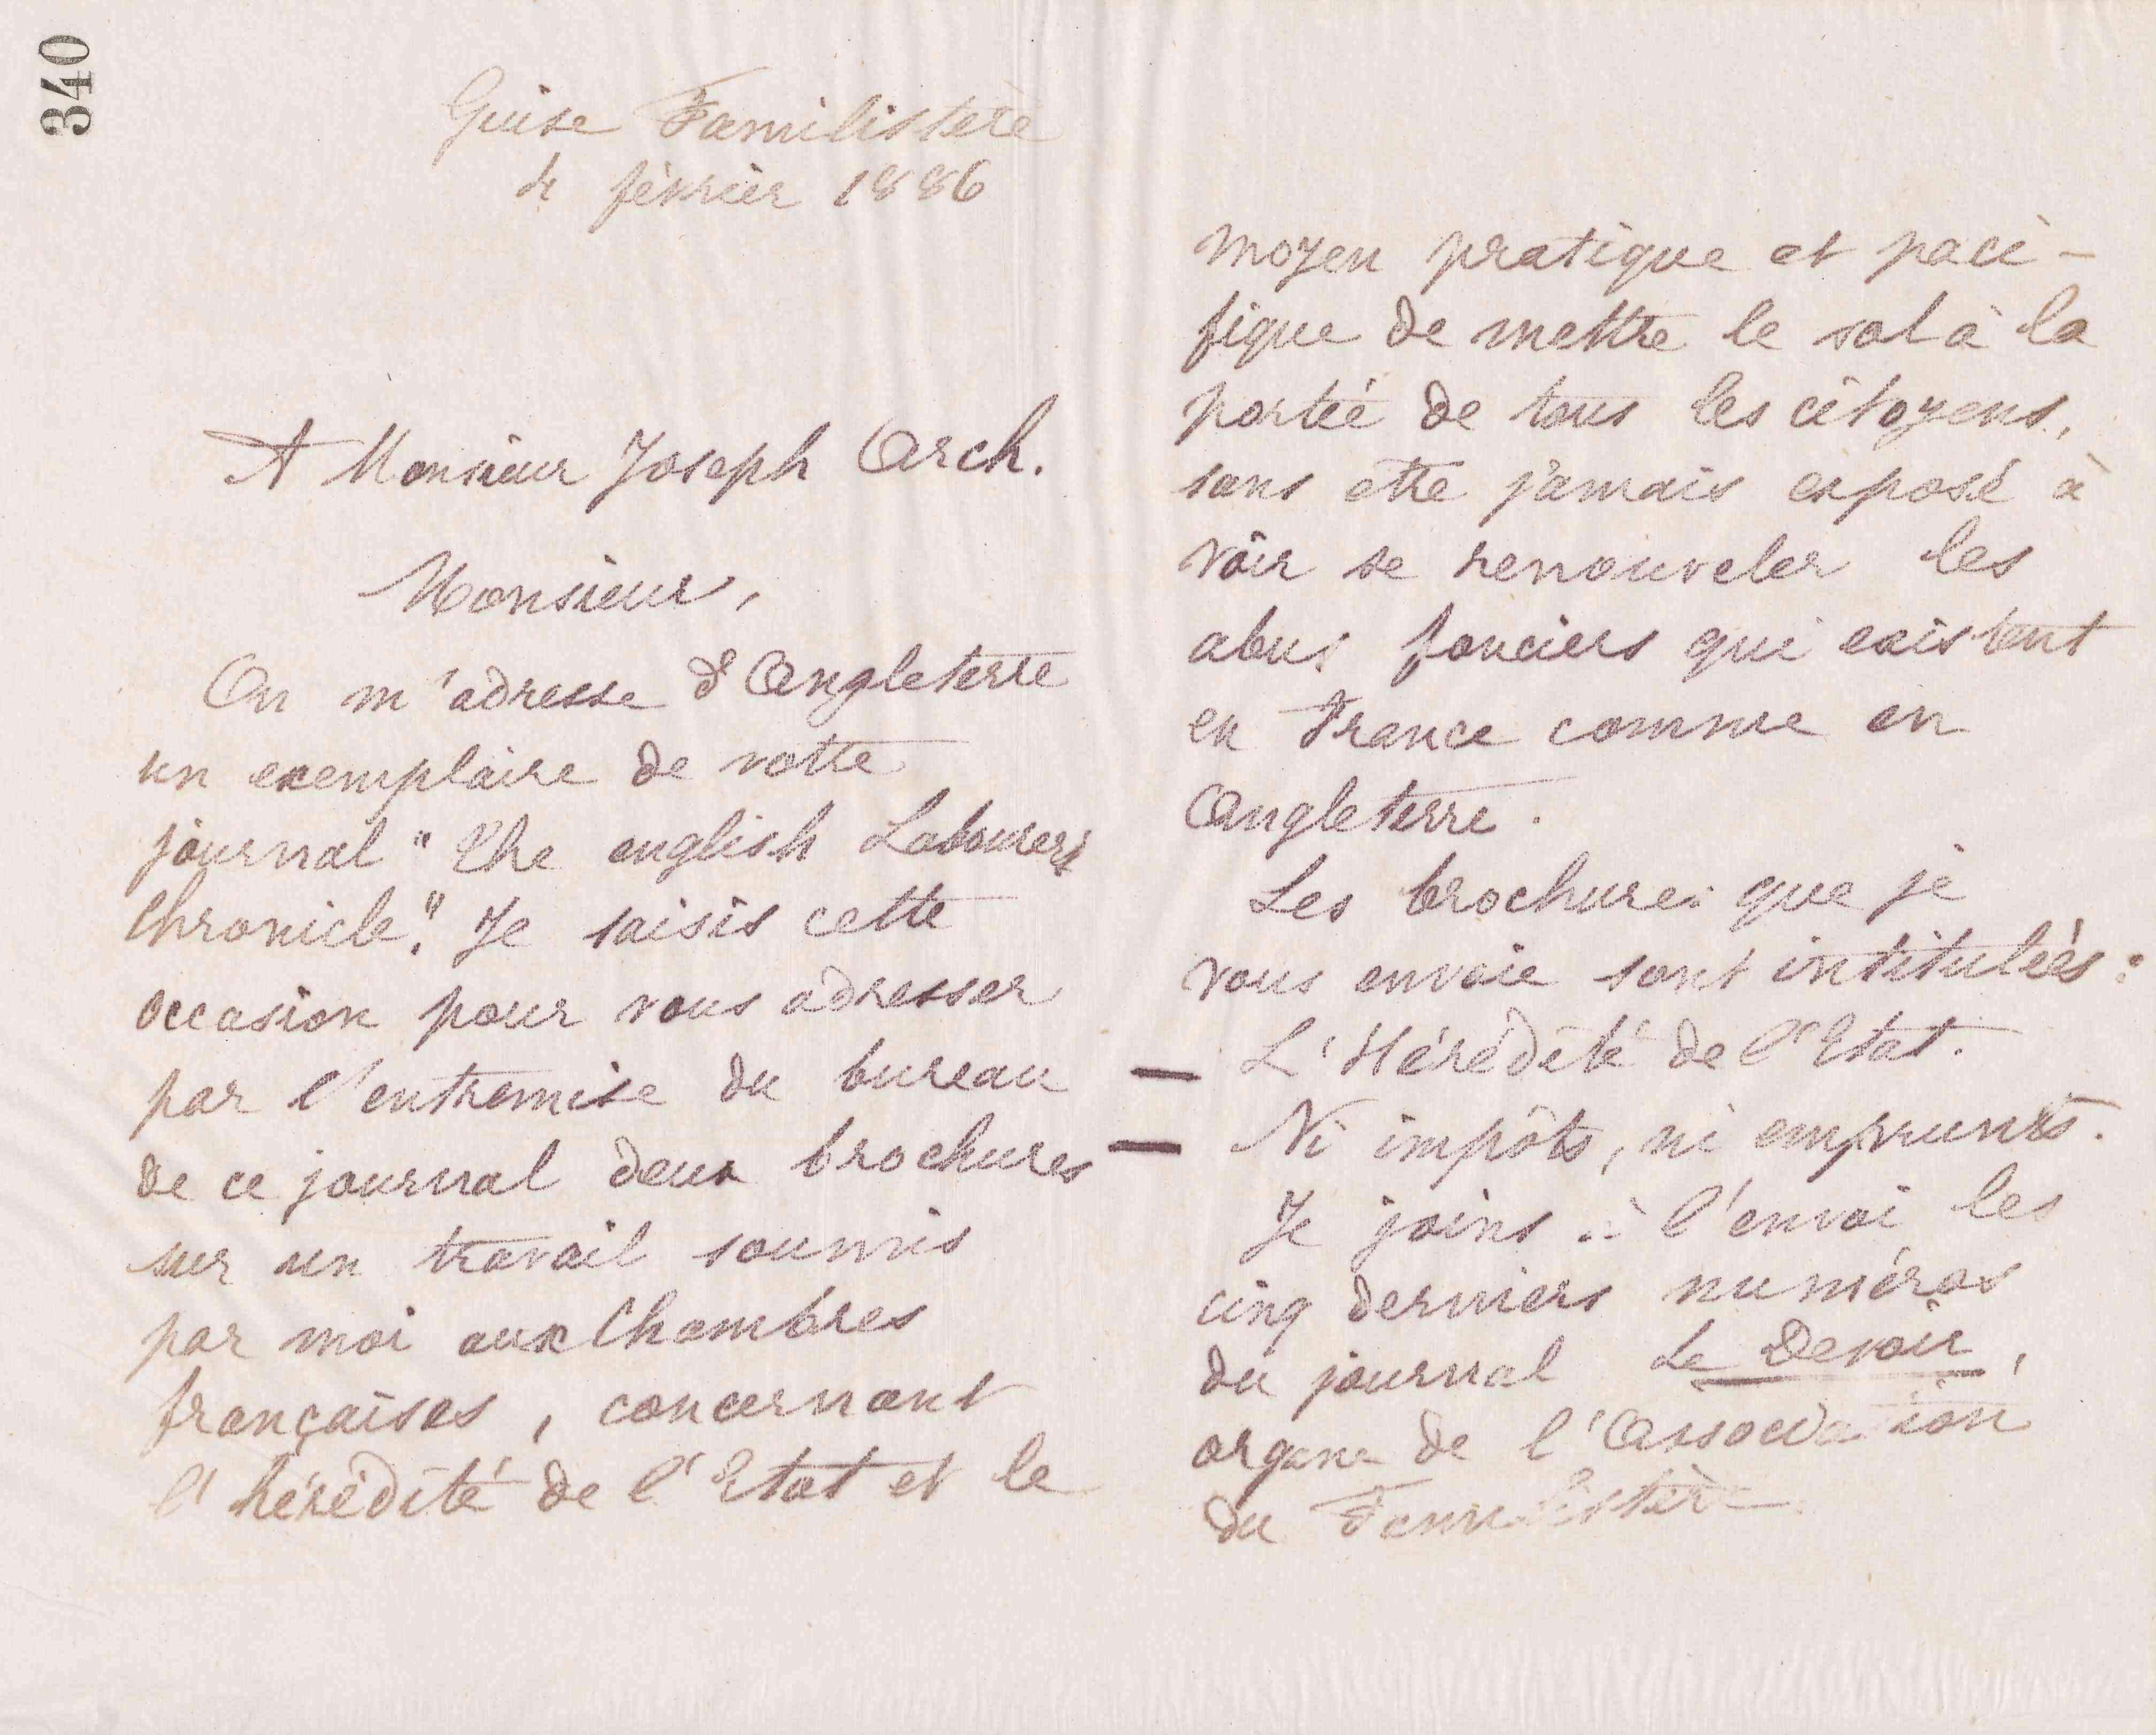 340
Guise Familistère
4 février 1886
A Monsieur Joseph Arch.
Monsieur,
On m'adresse d'Angleterre
un exemplaire de votre
journal "The english Labourers
Chronicle." Je saisis cette
occasion pour vous adresser
par l'entremise du bureau
de ce journal deux brochures
sur un travail soumis
par moi aux Chambres
françaises, concernant
l'hérédité de l'Etat et le
moyen pratique et paci-
fique de mettre le sol à la
portée de tous les citoyens,
sans être jamais exposé à
voir se renouveler les
abus fonciers qui existent
en France comme en
Angleterre.
Les brochures que je
vous envoie sont intitulées:
— L'Hérédité de l'Etat.
— Ni impôts, ni emprunts.
Je joins à l'envoi les
cinq derniers numéros
du journal Le Devoir,
organe de l'Association
du Familistère.